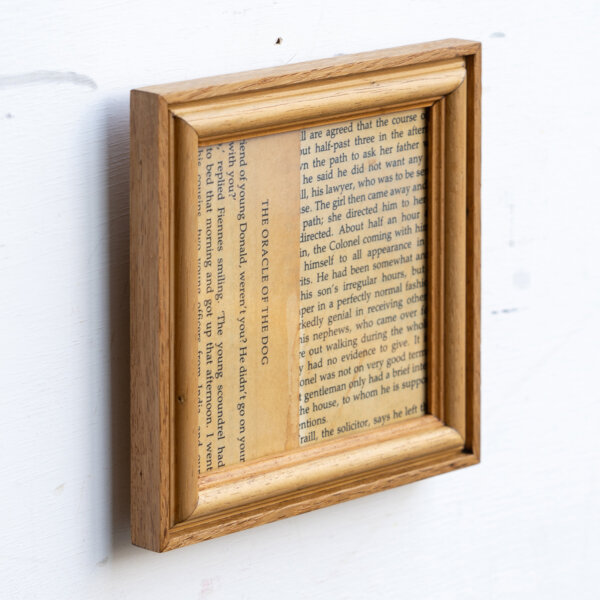 THE ORACLE OF THE DOG
iend of young Donald, weren't you? He didn't go on your
with you?'
', replied Fiennes smiling. 'The young scoundrel had
to bed that morning and got up that afternoon. I went
his cousins, two young officers from India, and our
ll are agreed that the course o
out half-past three in the after
wn the path to ask her father
he said he did not want any
ll, his lawyer, who was to be se
se. The girl then came away and
path; she directed him to her
directed. About half an hour
in, the Colonel coming with him
himself to all appearance in
rits. He had been somewhat an
his son's irregular hours, but
per in a perfectly normal fashi
rkedly genial in receiving other
his nephews, who came over f
re out walking during the whol
y had no evidence to give. It
onel was not on very good term
t gentleman only had a brief inte
the house, to whom he is suppo
entions.
raill, the solicitor, says he left th